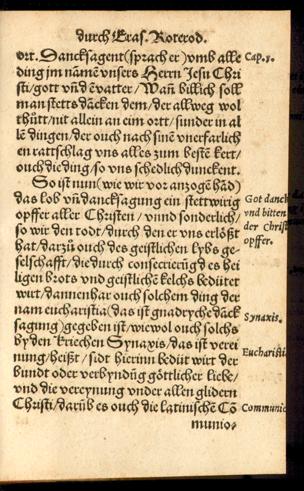 durch Eras. Roterod.
ort. Dancksagent (sprach er) vmb alle Cap. 5.
ding jm namē vnsers Herrn Jesu Chri
sti/gott vnd dē vatter/Wañ billich soll
man stetts dācken dem/der allweg wol
thůtt/nit allein an eim ortt/sunder in al
lē dingen/der ouch nach sinē vnerfarlich
en rattschlag vns alles zum bestē kert/
ouch die ding/so vns schedlich dunckent.
So ist nun (wie wir vor anzogē hād)
das lob vñ dancksagung ein stettwirig
opffer aller Christen/vnnd sonderlich/
so wir den todt/durch den er vns erlößt
hat/darzů ouch des geistlichen lybs ge-
selschafft/die durch consecrierūg des hei
ligen brots vnd geistlichē kelchs bediitet
wirt/dannenhar ouch solchem ding der
nam eucharistia (das ist gnadryche dāck
sagung) gegeben ist/wiewol ouch solchs
by den Kriechen Synaxis/das ist verei
nung/heißt/sidt hierinn bediit wirt der
bundt oder verbyndūg göttlicher liebe/
vnd die vereynung vnder allen glidern
Christi/darūb es ouch die latinischē Cō
munio-
Got danck
vnd bitten
der Christ
opffer.
Synaxis.
Eucharisti
Communio